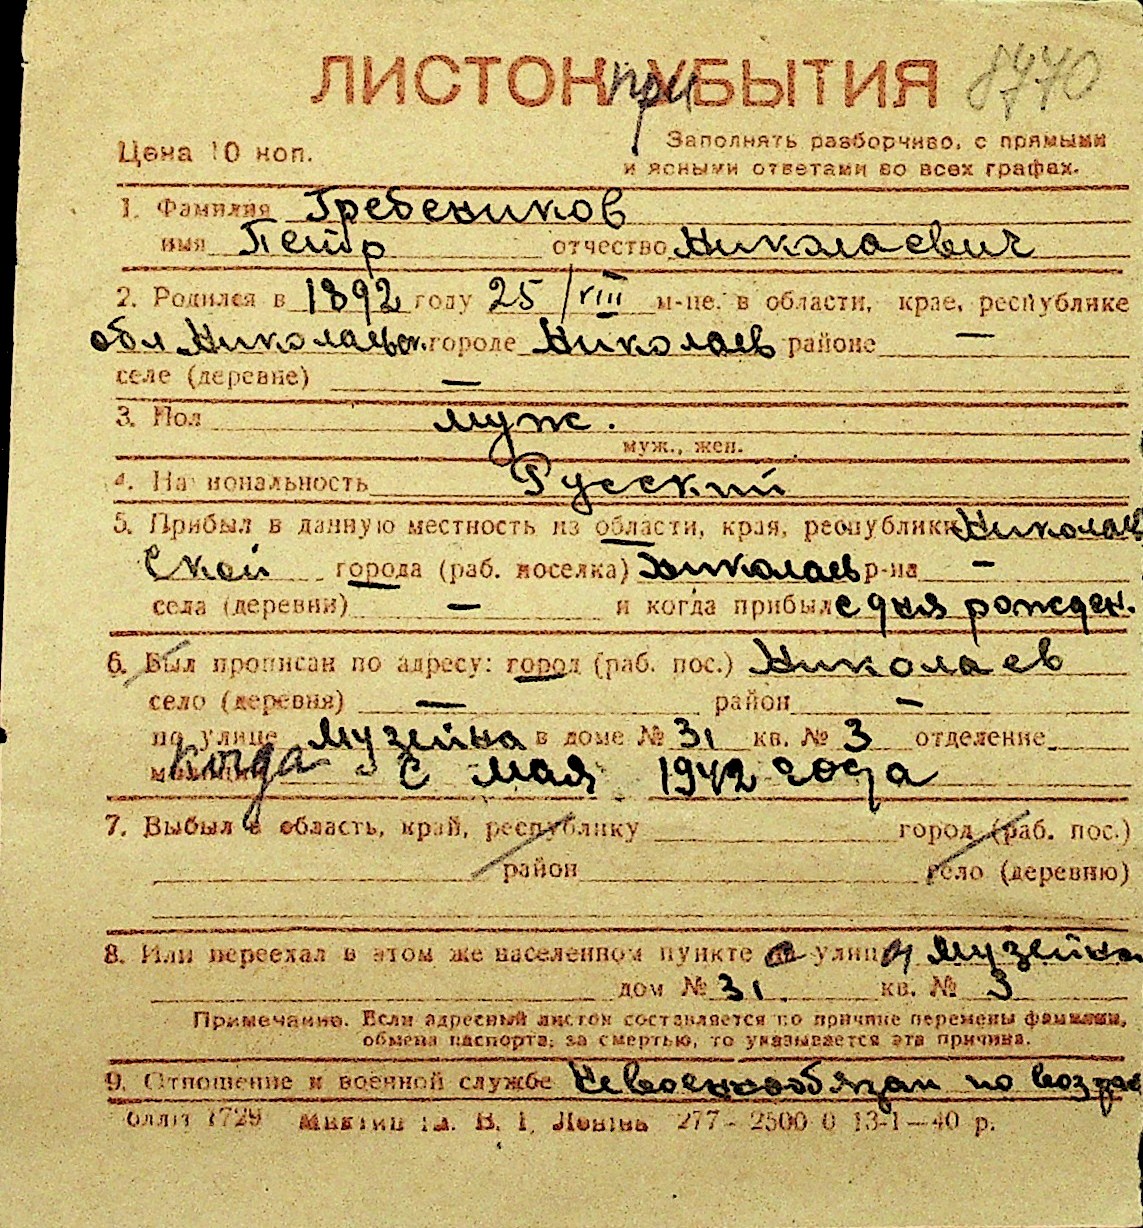 ЛИСТОК ПРИБЫТИЯ 8770
Цена 10 коп. Заполнять разборчиво, с прямыми
и ясными ответами во всех графах.
1. Фамилия Гребеников
имя Петр отчество Николаевич
2. Родился в 1892 году 25/VIII м-це. в области, крае, республике
обл Николаевск. городе Николаев районе —
селе (деревне) —
3. Пол муж.
муж., жен.
4. Национальность Русский
5. Прибыл в данную местность из области, края, республики Николаев
ской города (раб. поселка) Николаев р-на —
села (деревни) — и когда прибыл с дня рожден.
6. Был прописан по адресу: город (раб. пос.) Николаев
село (деревня) — район —
по улице Музейна в доме № 31 кв. № 3 отделение
милиции когда с мая 1942 года
7. Выбыл в область, край, республику город (раб. пос.)
район село (деревню)
8. Или переехал в этом же населенном пункте с улицы Музейна
дом № 31 кв. № 3
Примечание. Если адресный листок составляется по причине перемены фамилии,
обмена паспорта, за смертью, то указывается эта причина.
9. Отношение к военной службе Невоеннообязан по возрас
1729 В. І. Леніна 277 - 2500 0 13-1—40 р.